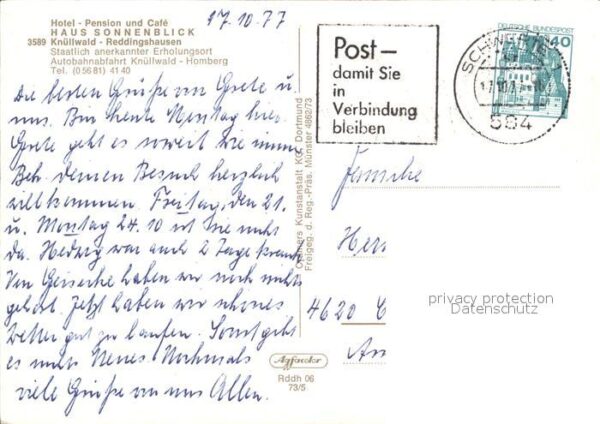 17.10.77
Hotel - Pension und Café
HAUS SONNENBLICK
3589 Knüllwald - Reddingshausen
Staatlich anerkannter Erholungsort
Autobahnabfahrt Knüllwald - Homberg
Tel. (0 56 81) 41 40
Die besten Grüße von Grete u.
uns. Bin heute Montag hier.
Grete geht es soweit wie immer
Bei deinem Besuch herzlich
willkommen. Freitag, den 21.
u. Montag 24.10 ist Sie nicht
da. Hedwig war auch 2 Tage krank
Von Geiseche haben wir noch nichts
gehört. Jetzt haben wir schönes
Wetter gut zu laufen. Sonst gibt
es nichts Neues Nochmals
viele Grüße von uns Allen.
Cramers Kunstanstalt KG, Dortmund
Freigeg. d. Reg.-Präs. Münster 4862/73
Agfacolor
Rddh 06
73/5
Post –
damit Sie
in
Verbindung
bleiben
DEUTSCHE BUNDESPOST
40
SCHWERTE
17.10.77
584
Familie
Herr
4620 C
An
privacy protection
Datenschutz